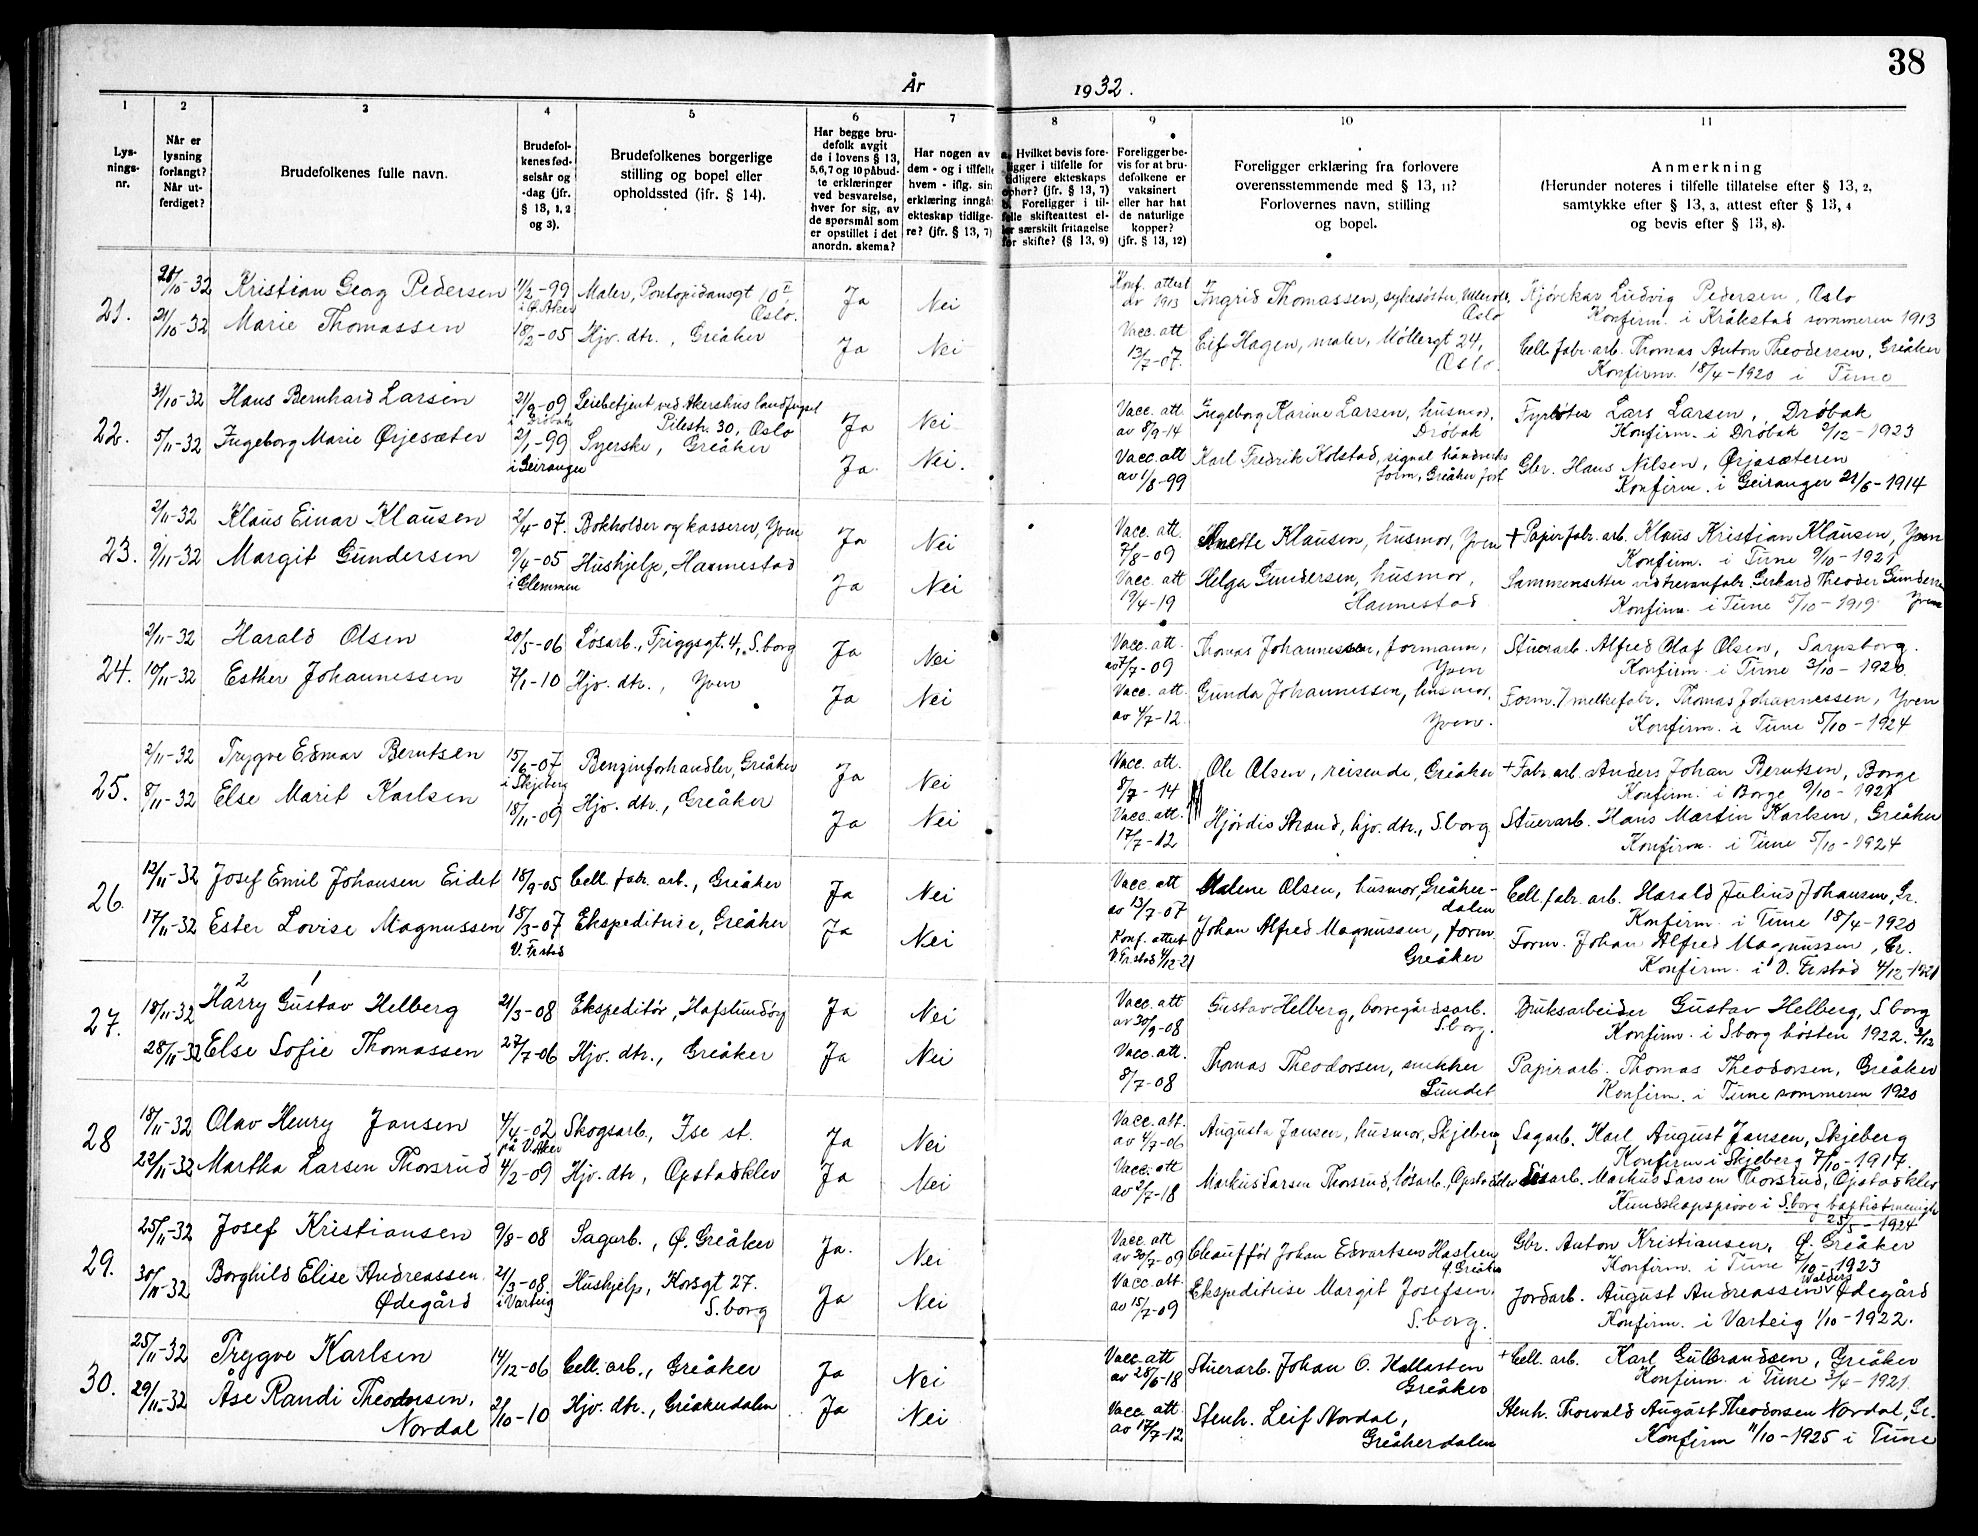 38
År 1932.
1 2 3 4 5 6 7 8 9 10 11
Lysningsnr.
Når er lysning forlangt? Når utferdiget?
Brudefolkenes fulle navn.
Brudefolkenes fødselsår og -dag (jfr. § 13, 1, 2 og 3).
Brudefolkenes borgerlige stilling og bopel eller opholdssted (jfr. § 14).
Har begge brudefolk avgit de i lovens § 13, 5, 6, 7 og 10 påbudte erklæringer ved besvarelse, hver for sig, av de spørsmål som er opstillet i det anordn. skema?
Har nogen av dem - og i tilfelle hvem - iflg. sin erklæring inngå ekteskap tidligere? (jfr. § 13, 7)
Hvilket bevis foreligger i tilfelle for tidligere ekteskaps ophør? (jfr. § 13, 7) Foreligger i tilfelle skifteattest eller særskilt fritagelse for skifte? (§ 13, 9)
Foreligger bevis for at brudefolkene er vaksinert eller har hat de naturlige kopper? (jfr. § 13, 12)
Foreligger erklæring fra forlovere overensstemmende med § 13, 11? Forlovernes navn, stilling og bopel.
Anmerkning (Herunder noteres i tilfelle tillatelse efter § 13, 2, samtykke efter § 13, 3, attest efter § 13, 4 og bevis efter § 13, 8).
21. 21/10-32
Kristian Georg Pedersen 1/2-99 i Ø. Aker Maler, Pontopidansgt 10 I, Oslo. Ja Nei Konf. attest av 1913 Ingrid Thomassen, sykesøster, Ullevål, Oslo Kjørekar Ludvig Pedersen, Oslo
Konfirm. i Kråkstad sommeren 1913
21/10-32 Marie Thomassen 18/2-05 Hjv. dtr., Greåker Ja Nei Vacc. att 13/7-07. Leif Hagen, maler, Møllergt 24, Oslo. Cell. fabr. arb. Thomas Anton Theodorsen, Greåker
Konfirm. 18/4-1920 i Tune
22. 31/10-32 Hans Bernhard Larsen 21/8-09 i Drøbak Leiebetjent ved Akershus landfengsel Pilestr. 30, Oslo Ja Nei Vacc. att av 8/9-14 Ingeborg Karine Larsen, husmor, Drøbak Fyrbøter Lars Larsen, Drøbak
Konfirm. i Drøbak 2/12-1923
5/11-32 Ingeborg Marie Ørjesæter 2/1-99 i Geiranger Syerske, Greåker Ja. Nei. Vacc. att av 1/8-99 Karl Fredrik Kolstad, signal håndverks form, Greåker fort Gbr. Hans Nilsen, Ørjasæteren
Konfirm. i Geiranger 21/6-1914
23. 2/11-32 Klaus Einar Klausen 2/4-07. Bokholder og kasserer, Yven Ja Nei Vacc. att. 7/8-09 Anette Klausen, husmor, Yven + Papirfabr. arb. Klaus Kristian Klausen, Yven
Konfirm. i Tune 9/10-1921
9/11-32 Margit Gundersen 9/4-05 i Glemmen Hushjelp, Hannestad Ja Nei Vacc. att 19/4-19 Helga Gundersen, husmor, Hannestad Gerhard Theodor Gundersen Yven
Konfirm. i Tune 5/10-1919
24. 2/11-32 Harald Olsen 20/5-06 Løsarb., Triggsgt. 4, S.borg Ja Nei Vacc. att. av 7/7-09 Thomas Johannessen, formann, Yven Stuerarb. Alfred Olaf Olsen, Sarpsborg.
Konfirm. i Tune 3/10-1920.
10/11-32 Esther Johannessen 7/1-10 Hjv. dtr., Yven Ja Nei Vacc. att. av 4/7-12 Gunda Johannessen, husmor, Yven. Form. / melkefabr. Thomas Johannessen, Yven
Konfirm. i Tune 5/10-1924
25. 2/11-32 Trygve Edmar Berntsen 15/6-07 i Skjeberg Benzinforhandler, Greåker Ja Nei Vacc. att. 8/7-14 Ole Olsen, reisende, Greåker + Fabr. arb. Anders Johan Berntsen, Borge
Konfirm. i Borge 9/10-1921
8/11-32 Else Marit Karlsen 18/11-09 Hjv. dtr., Greåker Ja Nei Vacc. att. 17/7-12 Hjørdis Strand, hjv. dtr., S.borg Stuerarb. Hans Martin Karlsen, Greåker
Konfirm. i Tune 5/10-1924
26. 12/11-32 Josef Emil Johansen Eidet 18/9-05 Cell. fabr. arb., Greåker Ja Nei Vacc. att av 13/7-07 Malene Olsen, husmor, Greåkerdalen Cell. fabr. arb. Harald Julius Johansen, Gr.
Konfirm. i Tune 18/4-1920
17/11-32 Ester Lovise Magnussen 18/3-07 V. Fr.stad Ekspeditrise, Greåker Ja Nei Konf. attest V. Fr.stad 4/12-21 Johan Alfred Magnussen, form. Greåker Form. Johan Alfred Magnussen, Gr.
Konfirm. i V. Fr.stad 4/12-1921
2 1
27. 18/11-32 Harry Gustav Helberg 21/3-08 Ekspeditør, Hafslundsøy Ja Nei Vacc. att av 30/9-08 Gustav Helberg, borregårdsarb. S.borg. Bruksarbeider Gustav Helberg, S.borg
Konfirm. i S.borg høsten 1922. 3/12
28/11-32 Else Sofie Thomassen 27/7-06 Hjv. dtr., Greåker Ja Nei Vacc. att. 8/7-08 Thomas Theodorsen, snekker Sundet Papirarb. Thomas Theodorsen, Greåker
Konfirm. i Tune sommeren 1920
28 18/11-32 Olav Henry Jansen 4/4-02 på V. Aker Skogsarb., Ise st. Ja Nei Vacc. att. av 4/7-06 Augusta Jansen, husmor, Skjeberg Sagarb. Karl August Jansen, Skjeberg
Konfirm i Skjeberg 7/10-1917
22/11-32 Martha Larsen Thorsrud 4/2-09 Hjv. dtr, Opstadklev Ja Nei Vacc. att av 2/7-18 Markus Larsen Thorsrud, løsarb., Opstadklev Løsarb. Markus Larsen Thorsrud, Opstadklev
Kundskapsprøve i S.borg baptistmenigh. 25/5-1924
29. 25/11-32 Josef Kristiansen 9/8-08 Sagarb., Ø. Greåker Ja. Nei Vacc. att av 30/7-09 Chauffør Johan Edvartsen Haslien Ø. Greåker Gbr. Anton Kristiansen, Ø. Greåker
Konfirm. i Tune 7/10-1923
30/11-32 Borghild Elise Andreassen Ødegård 21/3-08 i Varteig Hushjelp, Korsgt 27. S.borg Ja Nei Vacc. att. av 15/7-09 Ekspeditrise Margit Josefsen, S.borg. Jordarb. August Andreassen Ødegård
Konfirm. i Varteig 1/10-1922.
30. 25/11-32 Trygve Karlsen 14/12-06 Cell. arb., Greåker Ja Nei Vacc. att av 28/6-18 Stuerarb. Johan O. Hallasten Greåker + Cell. arb. Karl Gulbrandsen, Greåker
Konfirm. i Tune 3/4-1921.
29/11-32 Åse Randi Theodorsen, Nordal 2/10-10 Hjv. dtr., Greåkerdalen Ja Nei Vacc. att. av 17/7-12 Stenh. Leif Nordal, Greåkerdalen Stenh. Thorvald August Theodorsen Nordal, Gr.
Konfirm 11/10-1925 i Tune